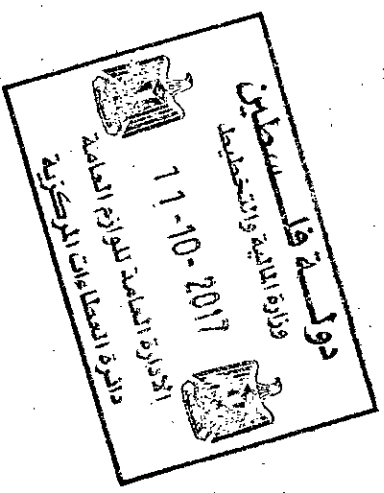 دولـــة فلـــسطين
وزارة المالية والتخطيط
11-10-2017
الادارة العامة للوازم العامة
دائرة العطاءات المركزية